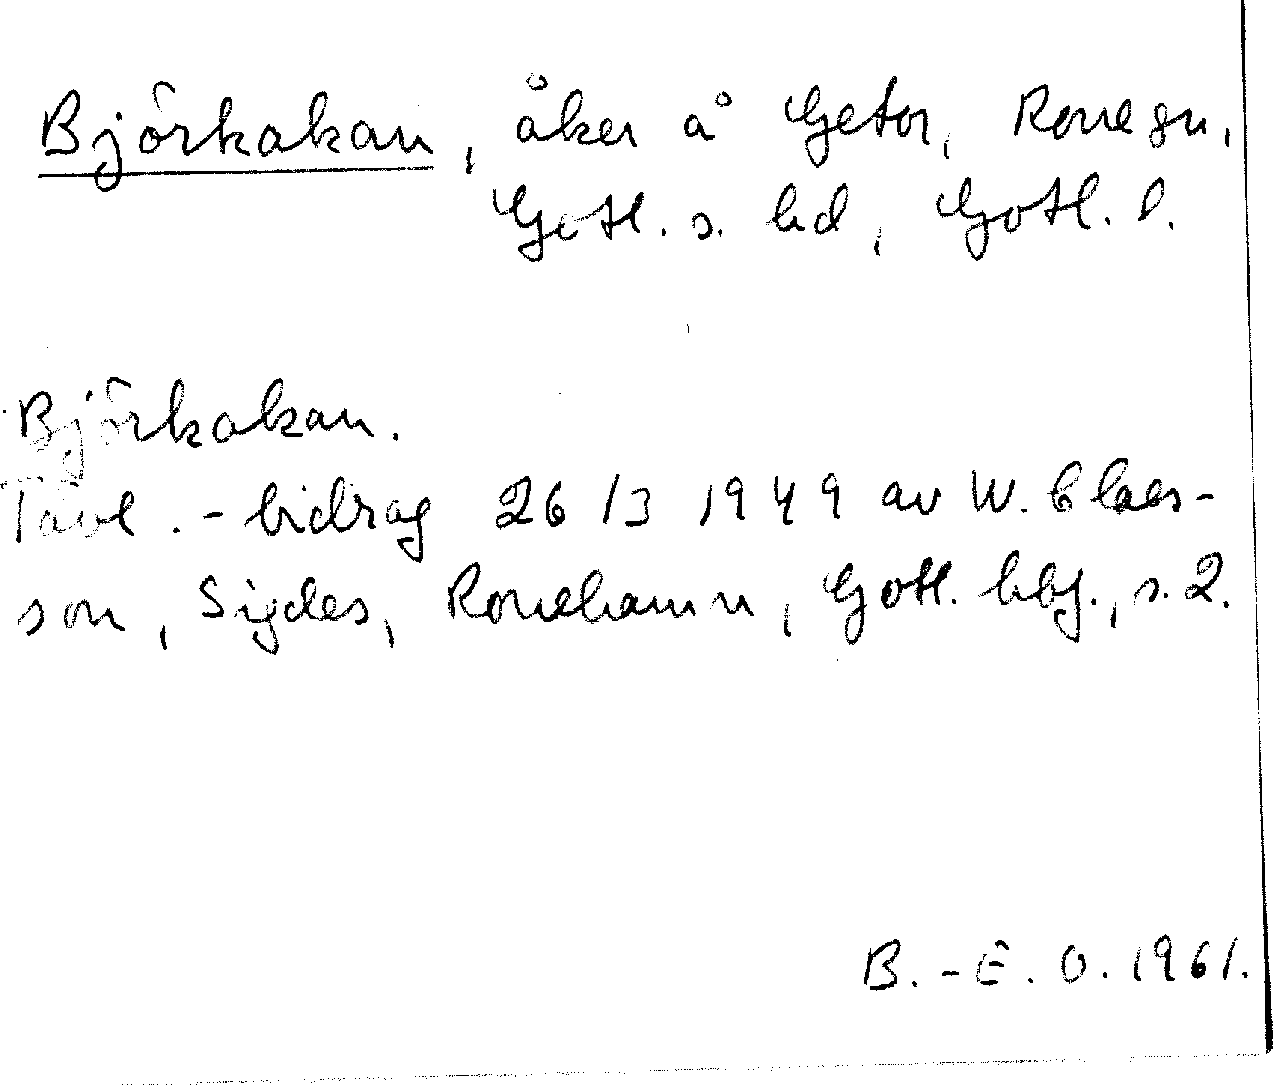 Björkakan, åker å Getor, Rone sn,
Gotl. s. hd, Gotl. l.
Björkakan.
Tävl.-bidrag 26/3 1949 av W. Claes-
son, Sigdes, Ronehamn, Gotl. hbf., s. 2.
B.-E. O. 1961.